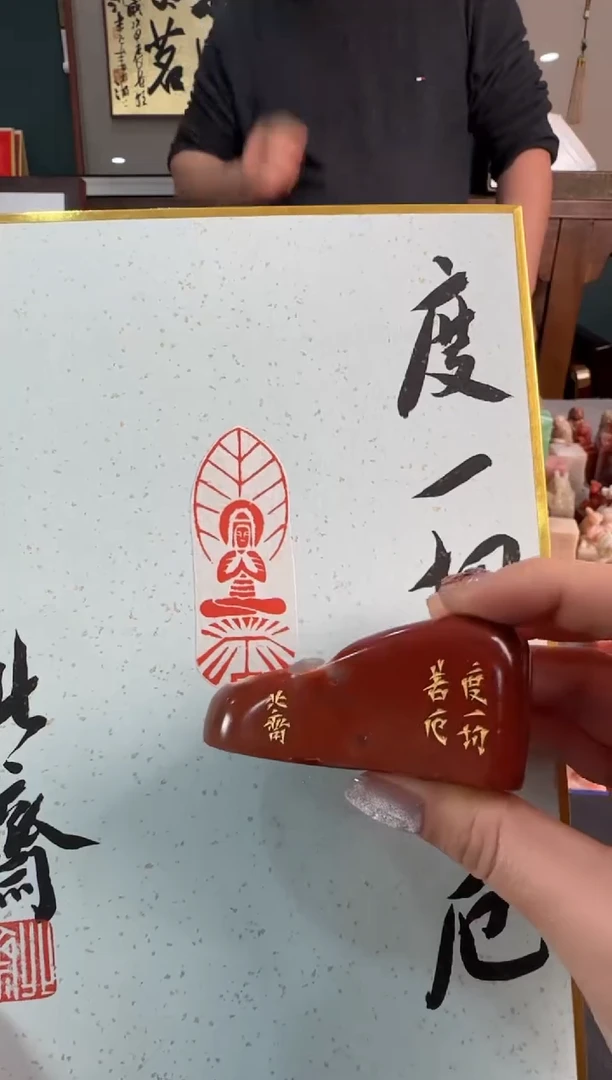 度一切
厄
北齋
度一切
苦厄
北齋
茗